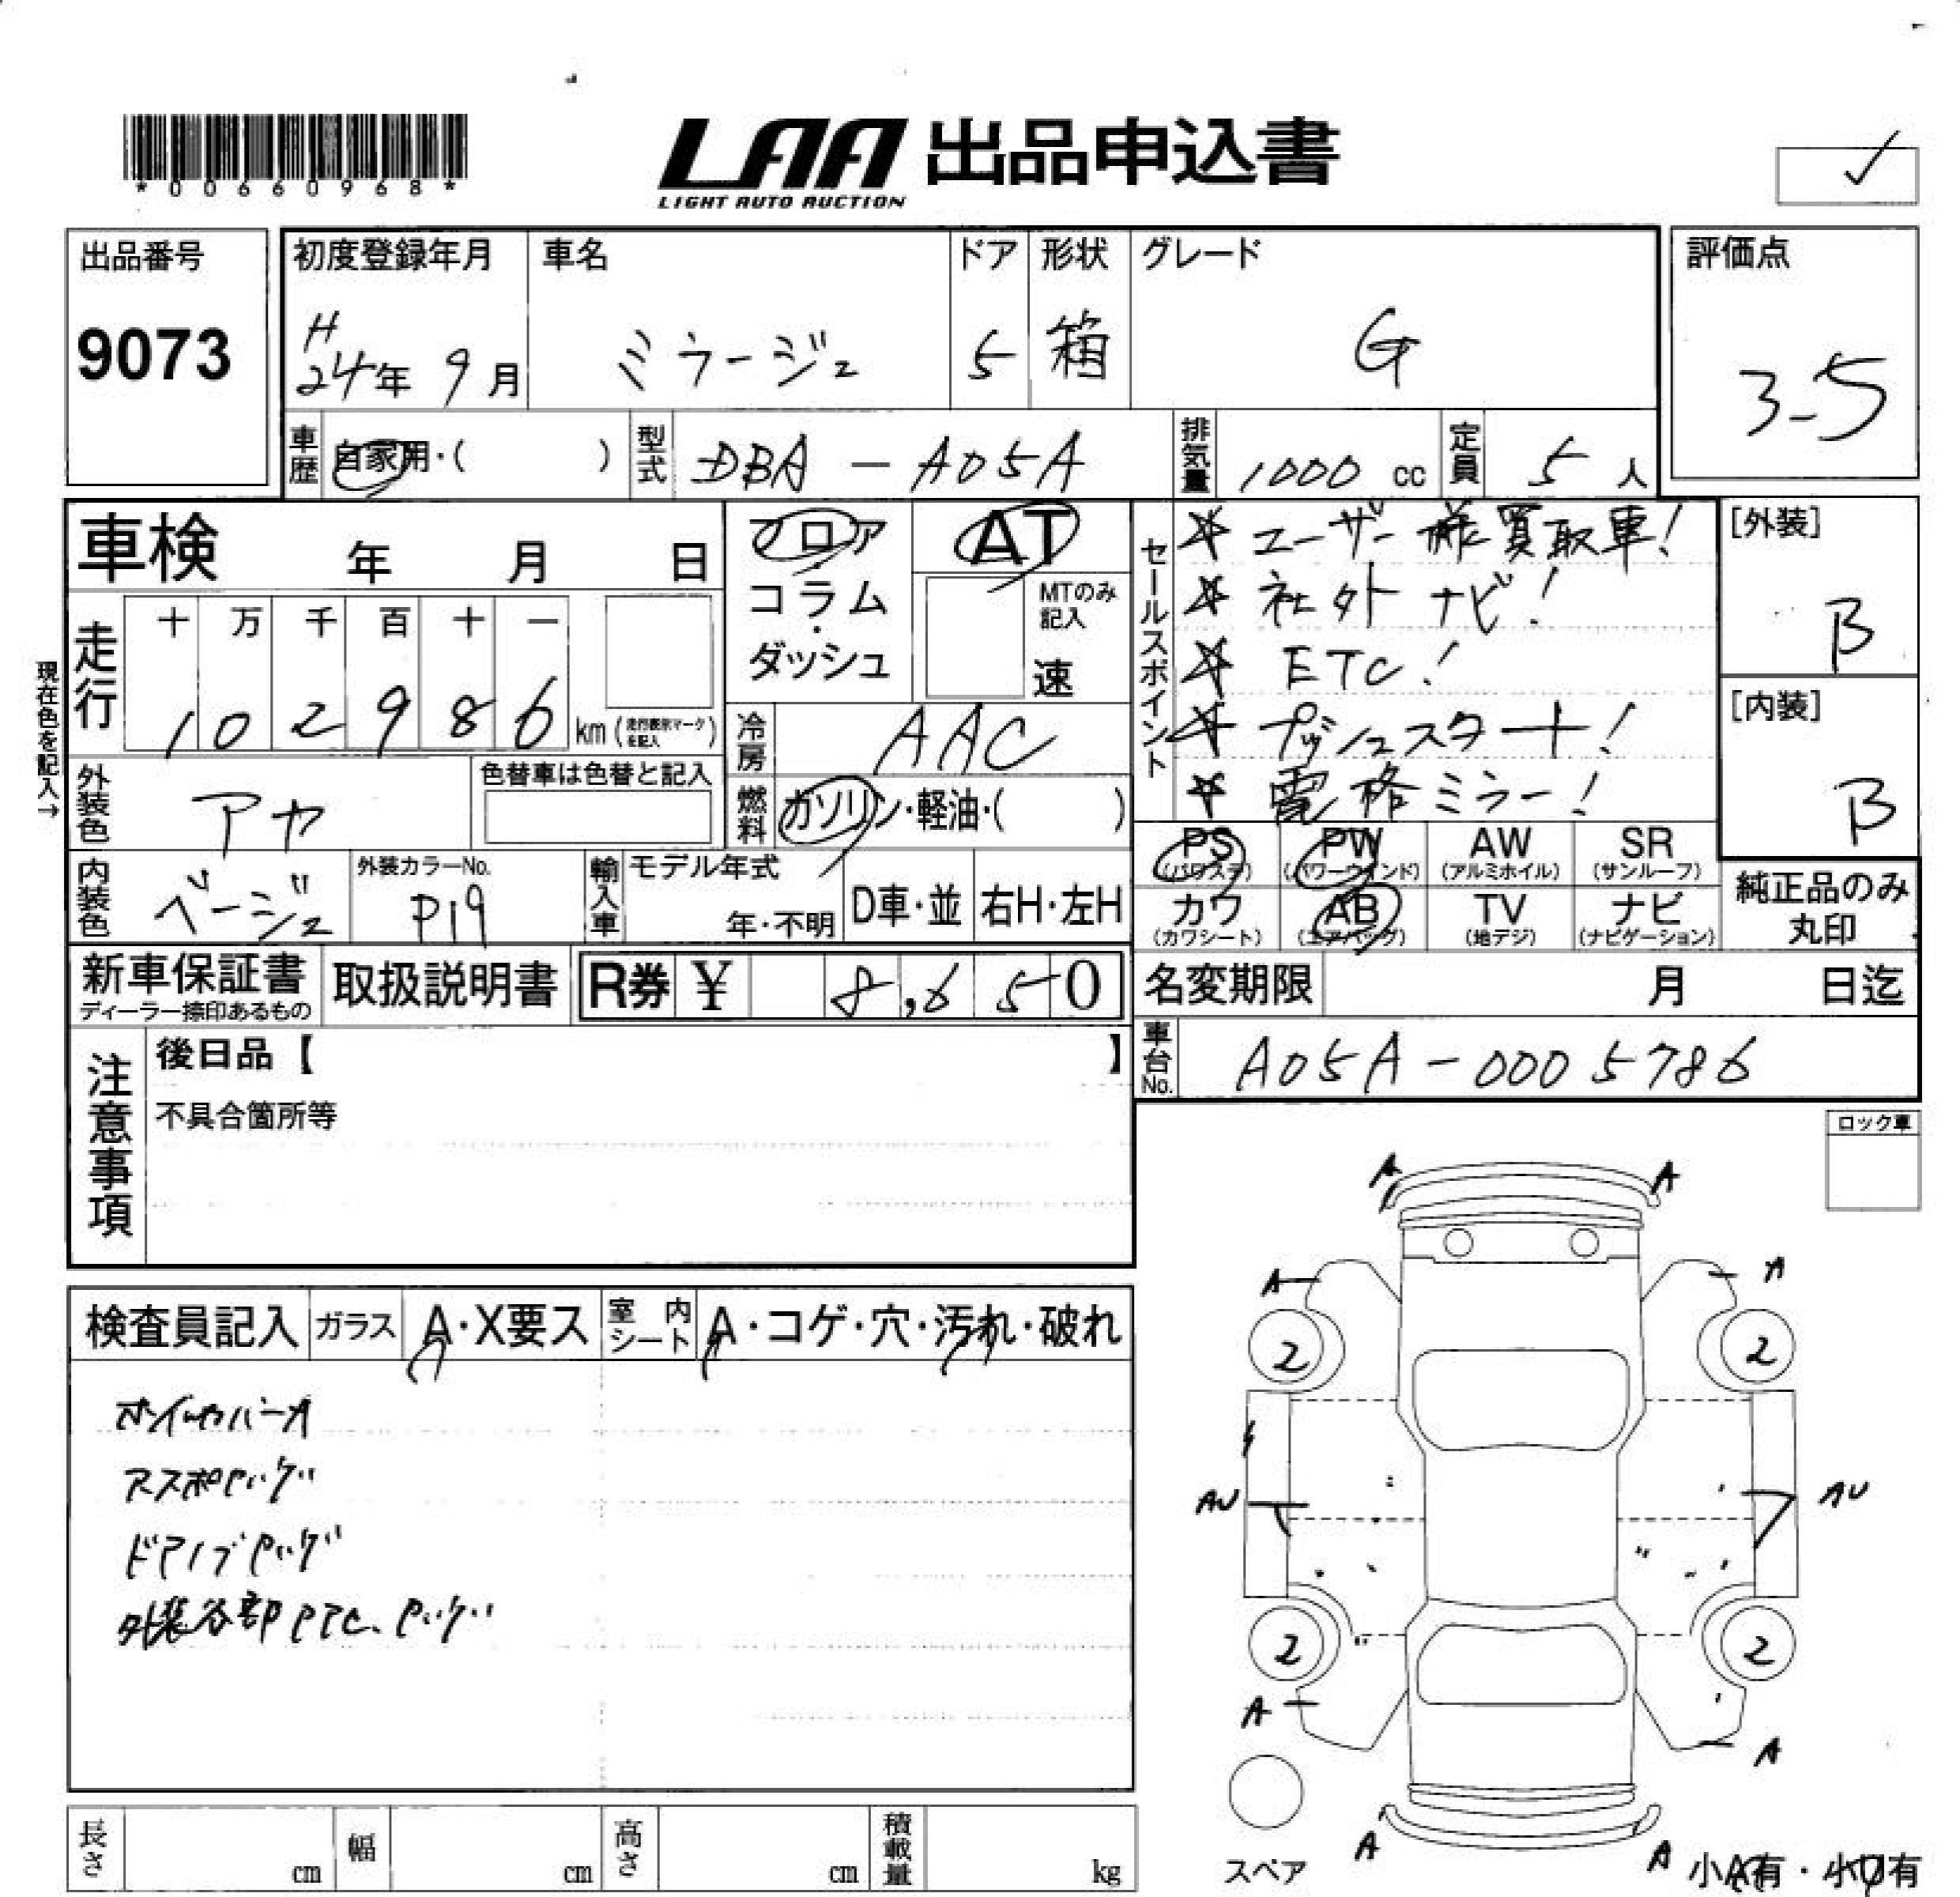 *00660968*
LAA 出品申込書
LIGHT AUTO AUCTION
出品番号
9073
初度登録年月
H
24年 9月
車名
ミラージュ
ドア
5
形状
箱
グレード
G
評価点
3.5
車歴 自家用・( )
型式 DBA - A05A
排気量 1000 cc
定員 5 人
車検 年 月 日
フロア
コラム
・
ダッシュ
AT
MTのみ
記入
速
セールスポイント
☆ ユーザー様買取車!
☆ 社外ナビ!
☆ ETC!
☆ プッシュスタート!
☆ 電格ミラー!
[外装]
B
[内装]
B
現在色を記入→
走行
十 万 千 百 十 一
1 0 2 9 8 6 km (走行表示マークを記入)
冷房 AAC
外装色 アヤ
色替車は色替と記入
燃料 ガソリン・軽油・( )
内装色 ベージュ
外装カラーNo.
P19
輸入車
モデル年式
年・不明
D車・並
右H・左H
PS (パワステ)
PW (パワーウインド)
AW (アルミホイル)
SR (サンルーフ)
カワ (カワシート)
AB (エアバッグ)
TV (地デジ)
ナビ (ナビゲーション)
純正品のみ
丸印
新車保証書
ディーラー捺印あるもの
取扱説明書
R券 ¥ 8,650
名変期限 月 日迄
車台No. A05A-0005786
注意事項
後日品【 】
不具合箇所等
ロック車
検査員記入
ガラス A・X要ス
室内シート A・コゲ・穴・汚れ・破れ
外装各部 PTC.
A A
A A
2 2
AU AU
2 2
A A
A A
スペア
小A有・小U有
長さ cm
幅 cm
高さ cm
積載量 kg